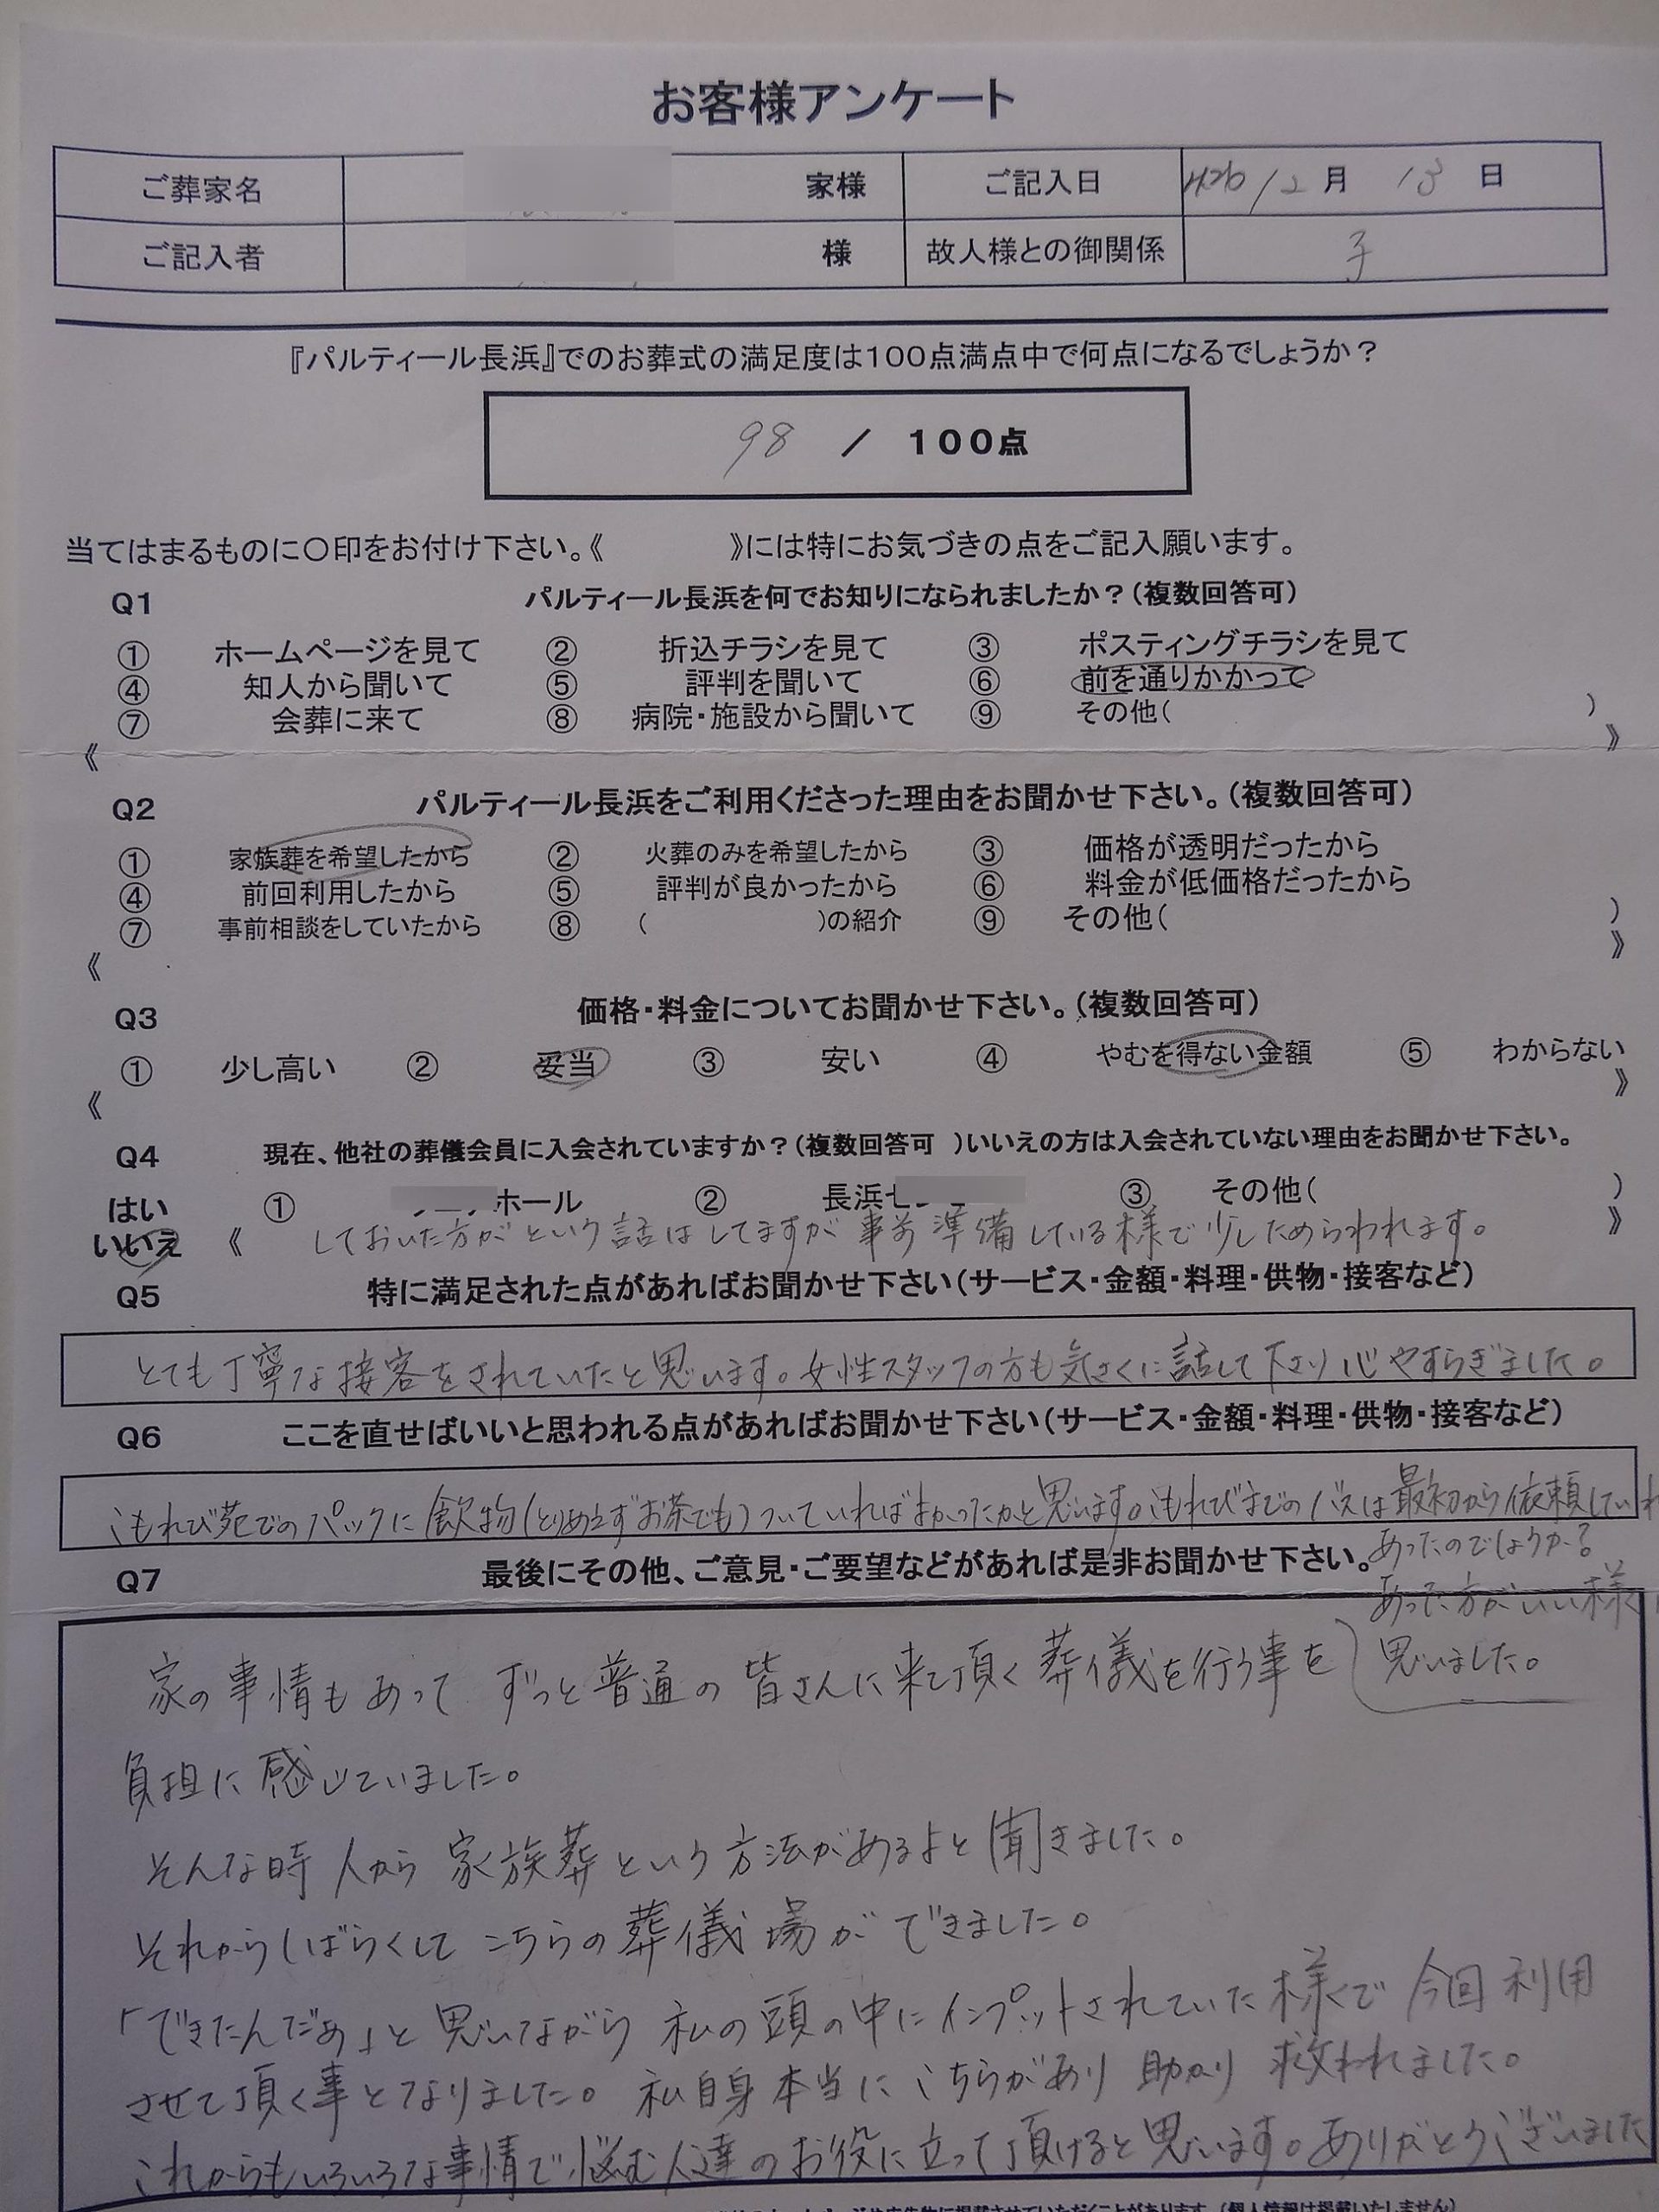 お客様アンケート
ご葬家名 家様 ご記入日 H26 12月 13日
ご記入者 様 故人様との御関係 子
『パルティール長浜』でのお葬式の満足度は100点満点中で何点になるでしょうか？
98 / 100点
当てはまるものに〇印をお付け下さい。《 》には特にお気づきの点をご記入願います。
Q1 パルティール長浜を何でお知りになられましたか？（複数回答可）
① ホームページを見て ② 折込チラシを見て ③ ポスティングチラシを見て
④ 知人から聞いて ⑤ 評判を聞いて ⑥ 前を通りかかって
⑦ 会葬に来て ⑧ 病院・施設から聞いて ⑨ その他（ ）
《 》
Q2 パルティール長浜をご利用くださった理由をお聞かせ下さい。（複数回答可）
① 家族葬を希望したから ② 火葬のみを希望したから ③ 価格が透明だったから
④ 前回利用したから ⑤ 評判が良かったから ⑥ 料金が低価格だったから
⑦ 事前相談をしていたから ⑧ （ ）の紹介 ⑨ その他（ ）
《 》
Q3 価格・料金についてお聞かせ下さい。（複数回答可）
① 少し高い ② 妥当 ③ 安い ④ やむを得ない金額 ⑤ わからない
《 》
Q4 現在、他社の葬儀会員に入会されていますか？（複数回答可 ）いいえの方は入会されていない理由をお聞かせ下さい。
はい ① ホール ② 長浜セ ③ その他（ ）
いいえ 《 しておいた方がという話はしてますが事前準備している様で少しためらわれます。 》
Q5 特に満足された点があればお聞かせ下さい（サービス・金額・料理・供物・接客など）
とても丁寧な接客をされていたと思います。女性スタッフの方も気さくに話して下さり心やすらぎました。
Q6 ここを直せばいいと思われる点があればお聞かせ下さい（サービス・金額・料理・供物・接客など）
こもれび苑でのパックに飲物（とりあえずお茶でも）ついていればよかったかと思います。こもれびまでのバスは最初から依頼していれ
あったのでしょうか？
Q7 最後にその他、ご意見・ご要望などがあれば是非お聞かせ下さい。
あった方がいい様に
思いました。
家の事情もあって ずっと普通の皆さんに来て頂く葬儀を行う事を
負担に感じていました。
そんな時人から家族葬という方法があるよと聞きました。
それからしばらくして こちらの葬儀場ができました。
「できたんだぁ」と思いながら私の頭の中にインプットされていた様で今回利用
させて頂く事となりました。私自身本当にこちらがあり助かり救われました。
これからもいろいろな事情で悩む人達のお役に立って頂けると思います。ありがとうございました
（個人情報は掲載いたしません）